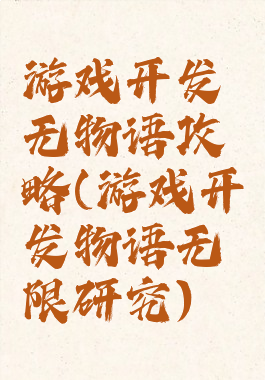 游戏开发
无物语攻
略(游戏开
发物语无
限研究)